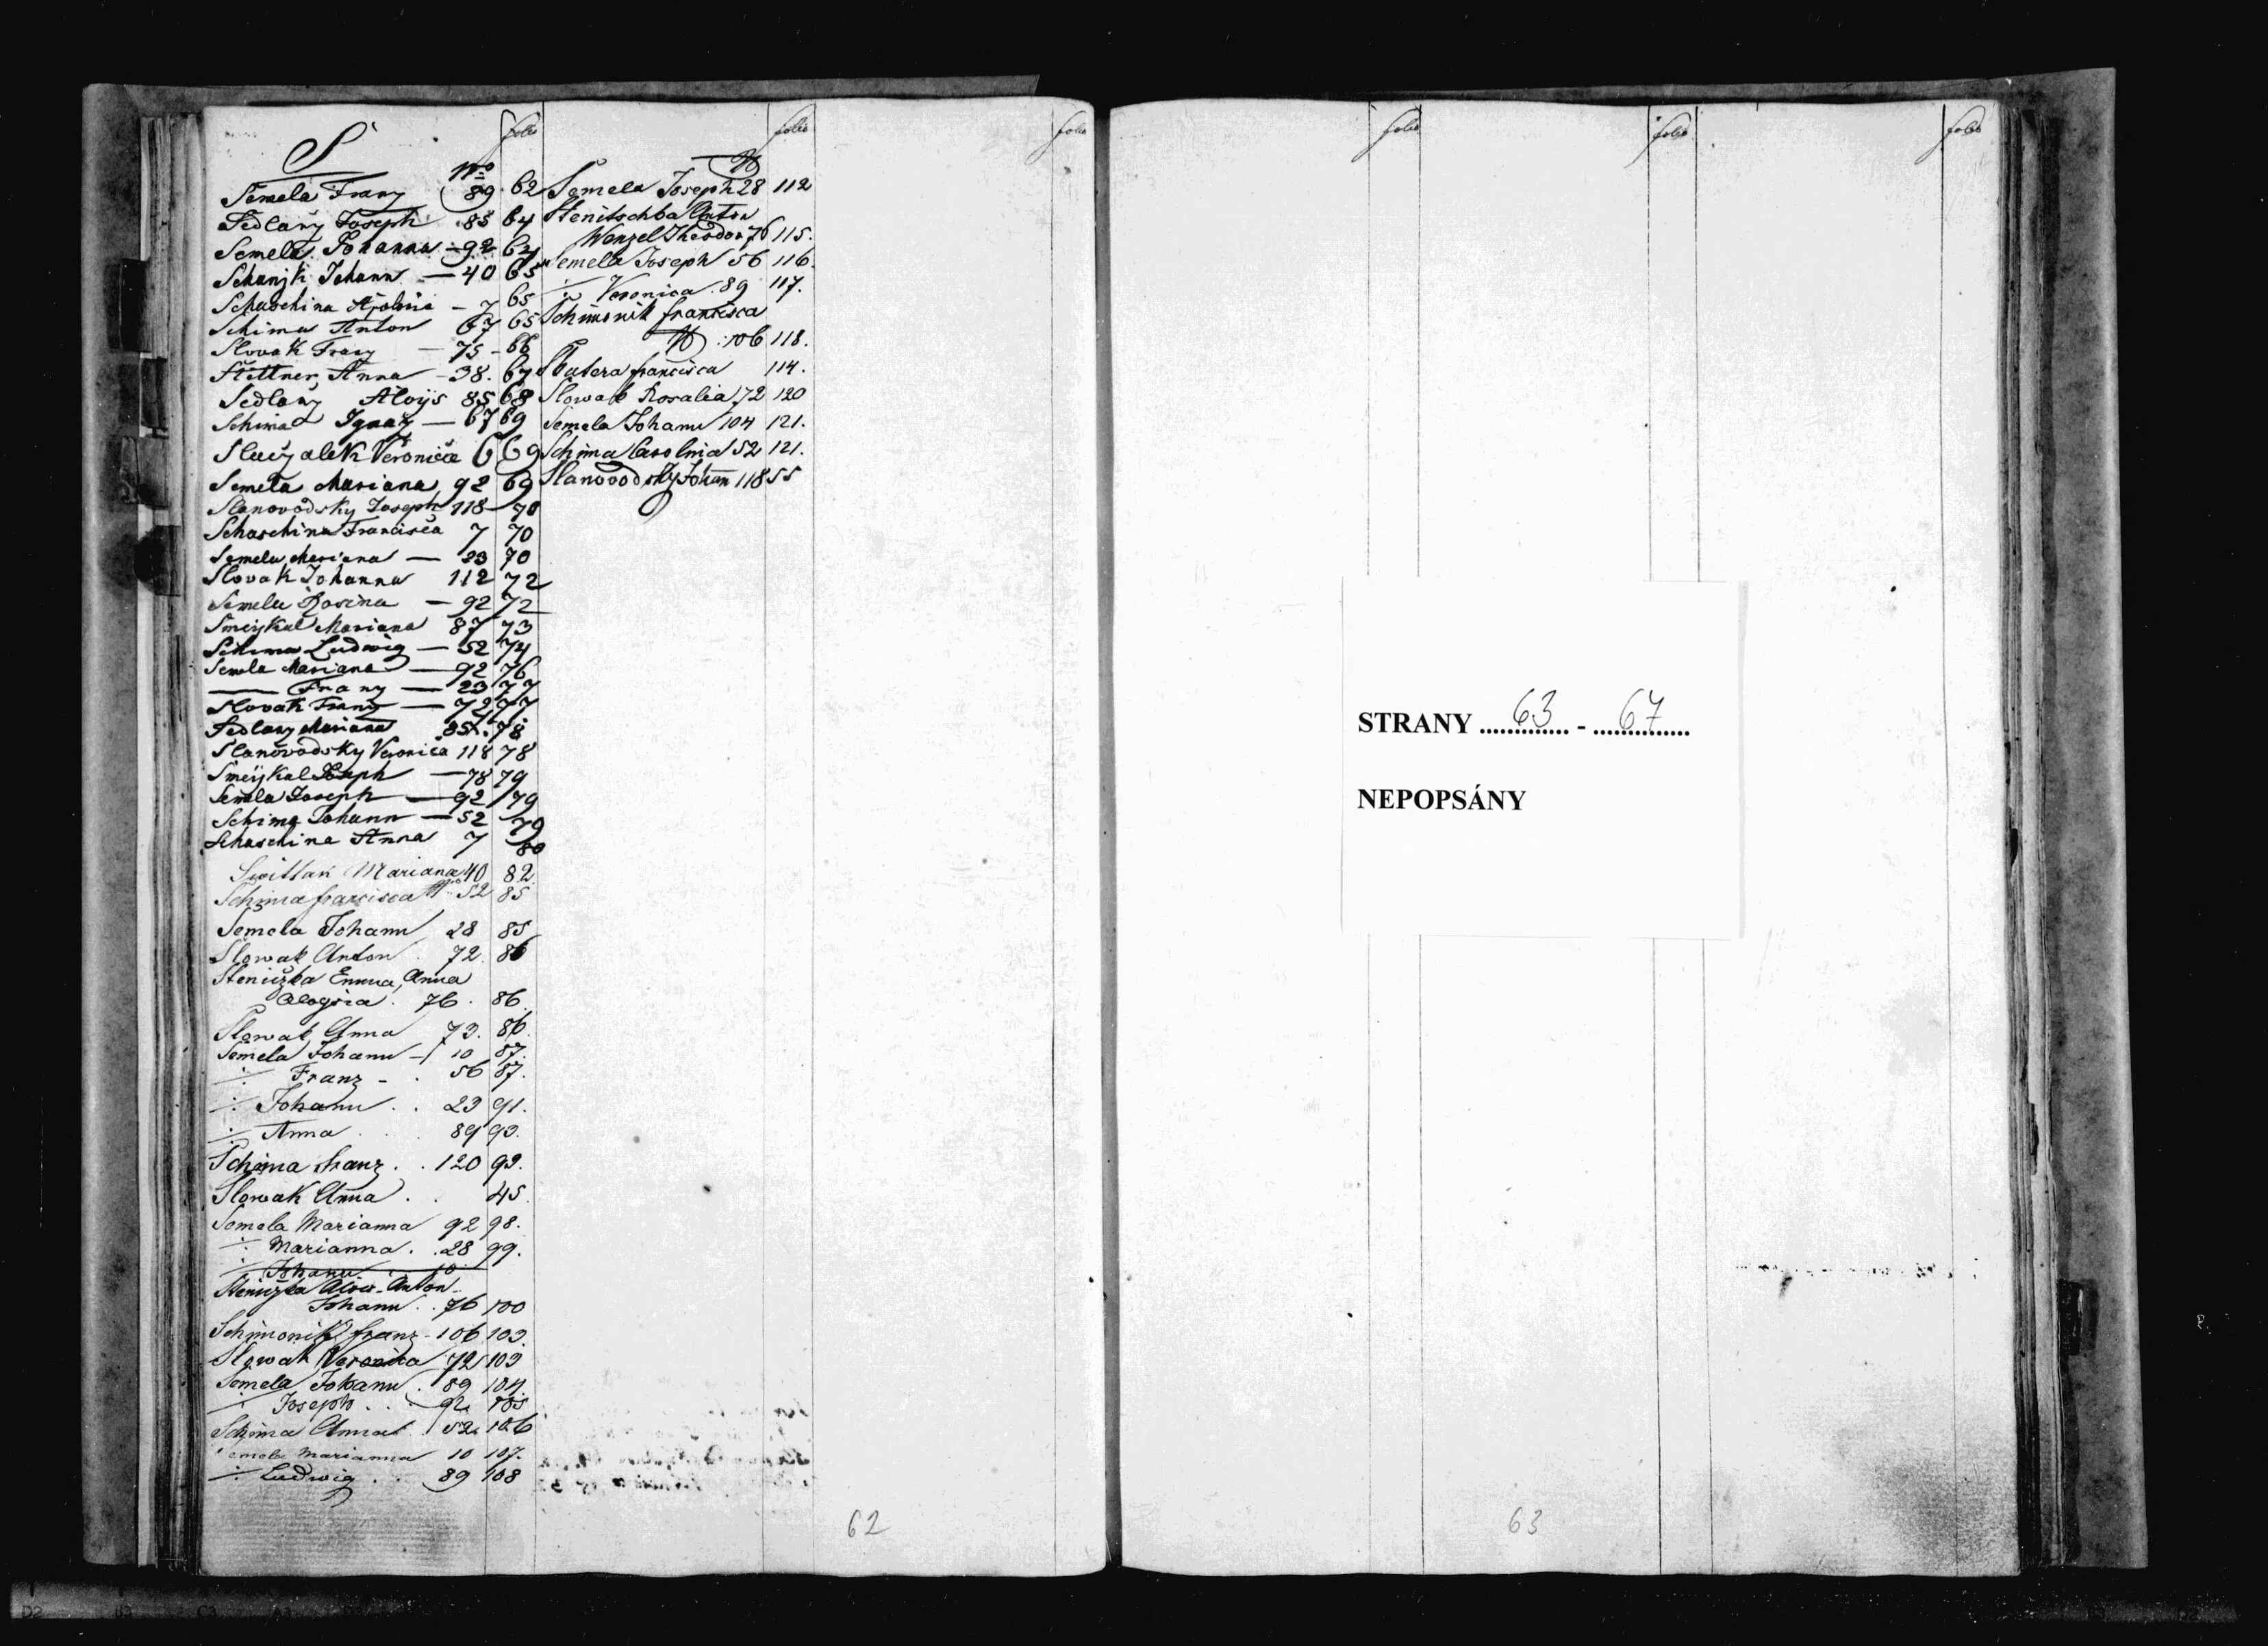 folio
folio
folio
S
No
Semela Franz 89 62
Sedlarz Joseph 85 64
Semela Johanna 92 64
Schanzki Johann — 40 65
Schaschina Apolonia — 7 65
Schima Anton 67 65
Slovak Franz — 75 - 66
Stettner, Anna - 38. 67
Sedlarz Aloys 85 68
Schima Ignatz — 67 69
Slaczalek Veronica 6 69
Semela Mariana 92 69
Slanovodsky Joseph 118 70
Schaschina Francisca 7 70
Semela Mariana — 23 70
Slovak Johanna 112 72
Semela Rosina — 92 72
Smeykal Mariana 87 73
Schima Ludwig — 52 74
Semla Mariana — 92 76
— Franz — 23 77
Slovak Franz — 72 77
Sedlarz Mariana 85. 78
Slanovodsky Veronica 118 78
Smeykal Joseph — 78 79
Semela Joseph — 92 79
Schima Johann — 52 79
Schaschina Anna 7 80
Swittak Mariana 40 82
Schima francisca No 52 85
Semela Johann 28 85
Slowak Anton 72. 86
Steniczka Emma, Anna
Aloysia. 76. 86
Slowak Anna 73. 86.
Semela Johann - 10 87.
÷ Franz - . 56 87.
÷ Johann . . 23 91.
÷ Anna . . 89 93.
Schima Franz . . 120 93.
Slowak Anna . . 45.
Semela Marianna 92 98.
÷ Marianna . . 28 99.
÷ Johann 10
Steniczka Alois-Anton-
Johann . . 76 100
Schimonik franz - 106 103.
Slowak Veronica 72 103
Semela Johann . 89 104.
÷ Joseph . . . 92. 105
Schima Anna 52. 106
Semela Marianna 10 107.
÷ Ludwig . . 89 108
N
Semela Joseph 28 112
Stenitschka Anton
Wenzel Theodor 76 115.
Semela Joseph 56 116.
÷ Veronica . 89 117.
Schimonik francisca
N . 106 118.
francisca 114.
Slowak Rosalia 72 120
Semela Johann 104 121.
Schima Carolina 52 121.
Slanovodsky Johann 118 55
62
folio
folio
folio
STRANY 63 - 67
NEPOPSÁNY
63